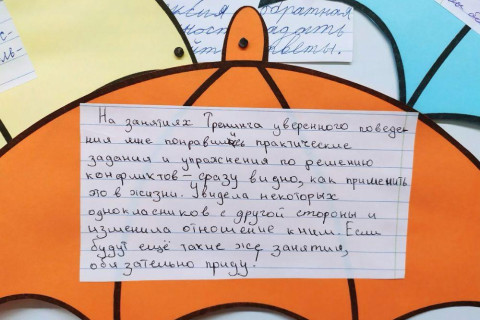 ссия обратная
ность задать
йте ответы.
На занятиях Тренинга уверенного поведе-
ния мне понравились практические
задания и упражнения по решению
конфликтов – сразу видно, как применить
это в жизни. Увидела некоторых
однокласников с другой стороны и
изменила отношение к ним. Если
будут ещё такие же занятия,
обязательно приду!